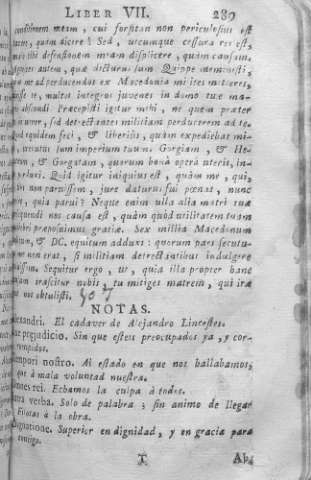 LIBER VII. 289
consilium meum, cui forsitan non periculosius est
tacere, quàm dicere? Sed, utcumque cessura res est,
malo tibi defensionem meam displicere, quàm causam.
Agnoscis autem, quæ dicturus sum. Quippe meministi,
me ad perducendos ex Macedonia milites mitteres,
dixisse te, multos integros juvenes in domo tuæ ma-
abscondi. Præcepisti igitur mihi, ne quem præter
intuerer, sed detrectantes militiam perducerem ad te.
quidem feci, & liberiùs, quàm expediebat mi-
executus sum imperium tuum. Gorgiam, & He-
& Gorgatam, quorum bona opera uteris, in-
perduxi. Quid igitur iniquius est, quàm me, qui,
tibi non paruissem, jure daturus fui pœnas, nunc
quia parui? Neque enim ulla alia matri tuæ
persequendi nos causa est, quàm quòd utilitatem tuam
muliebri præposuimus gratiæ. Sex millia Macedonum
& DC. equitum adduxi: quorum pars secutu-
me non erat, si militiam detrectantibus indulgere
voluissem. Sequitur ergo, ut, quia illa propter hanc
causam irascitur nobis, tu mitiges matrem, qui iræ
nos obtulisti.
NOTAS.
Alexandri. El cadaver de Alejandro Lincestes.
prejudicio. Sin que esteis preocupados ya, y cor-
rompidos.
tempori nostro. Al estado en que nos hallabamos,
que à mala voluntad nuestra.
rei. Echamos la culpa à todos.
verba. Solo de palabra; sin animo de llegar
Filotas à la obra.
Dignatione. Superior en dignidad, y en gracia para
contigo.
T Ap-